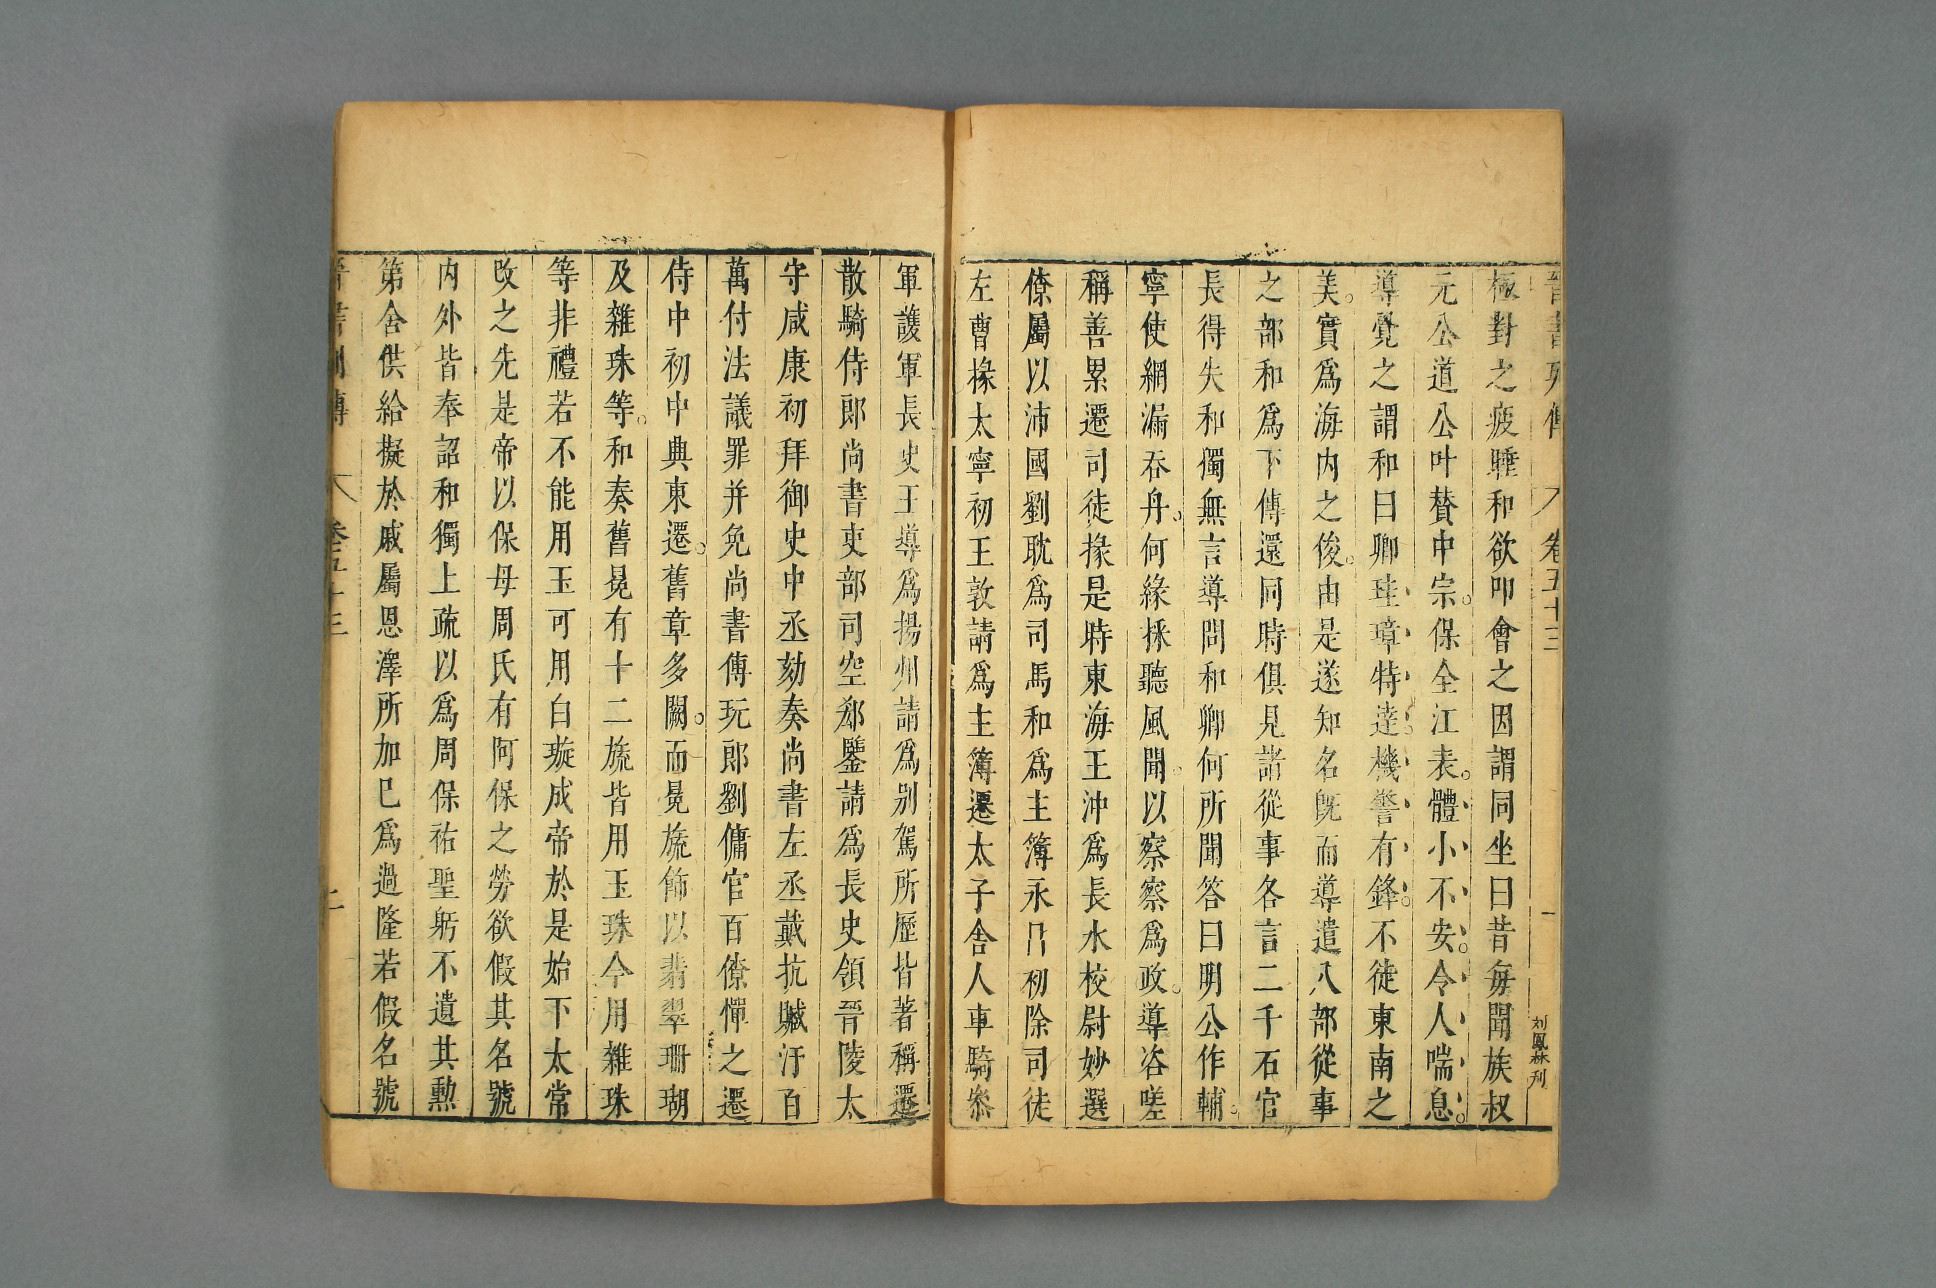 晉書列傳 卷五十三 一 刘鳳林刋
極對之疲睡和欲叩會之因謂同坐曰昔每聞族叔
元公道公叶贊中宗保全江表體小不安令人喘息
導覺之謂和曰卿珪璋特達機警有鋒不徒東南之
美實爲海内之俊由是遂知名既而導遣八部從事
之部和爲下傳還同時俱見諸從事各言二千石官
長得失和獨無言導問和卿何所聞答曰明公作輔
寧使網漏吞舟何緣採聽風聞以察察爲政導咨嗟
稱善累遷司徒掾是時東海王沖爲長水校尉妙選
僚屬以沛國劉耽爲司馬和爲主簿永昌初除司徒
左曹掾太寧初王敦請爲主簿遷太子舍人車騎叅
軍護軍長史王導爲揚州請爲别駕所歷皆著稱遷
散騎侍郎尚書吏部司空郄鑒請爲長史領晉陵太
守咸康初拜御史中丞劾奏尚書左丞戴抗贓汙百
萬付法議罪并免尚書傅玩郎劉傭官百僚憚之遷
侍中初中興東遷舊章多闕而冕旒飾以翡翠珊瑚
及雜珠等和奏舊冕有十二旒皆用玉珠今用雜珠
等非禮若不能用玉可用白璇成帝於是始下太常
改之先是帝以保母周氏有阿保之勞欲假其名號
内外皆奉詔和獨上疏以爲周保祐聖躬不遺其勲
第舍供給擬於戚屬恩澤所加已爲過隆若假名號
晉書列傳 卷五十三 二